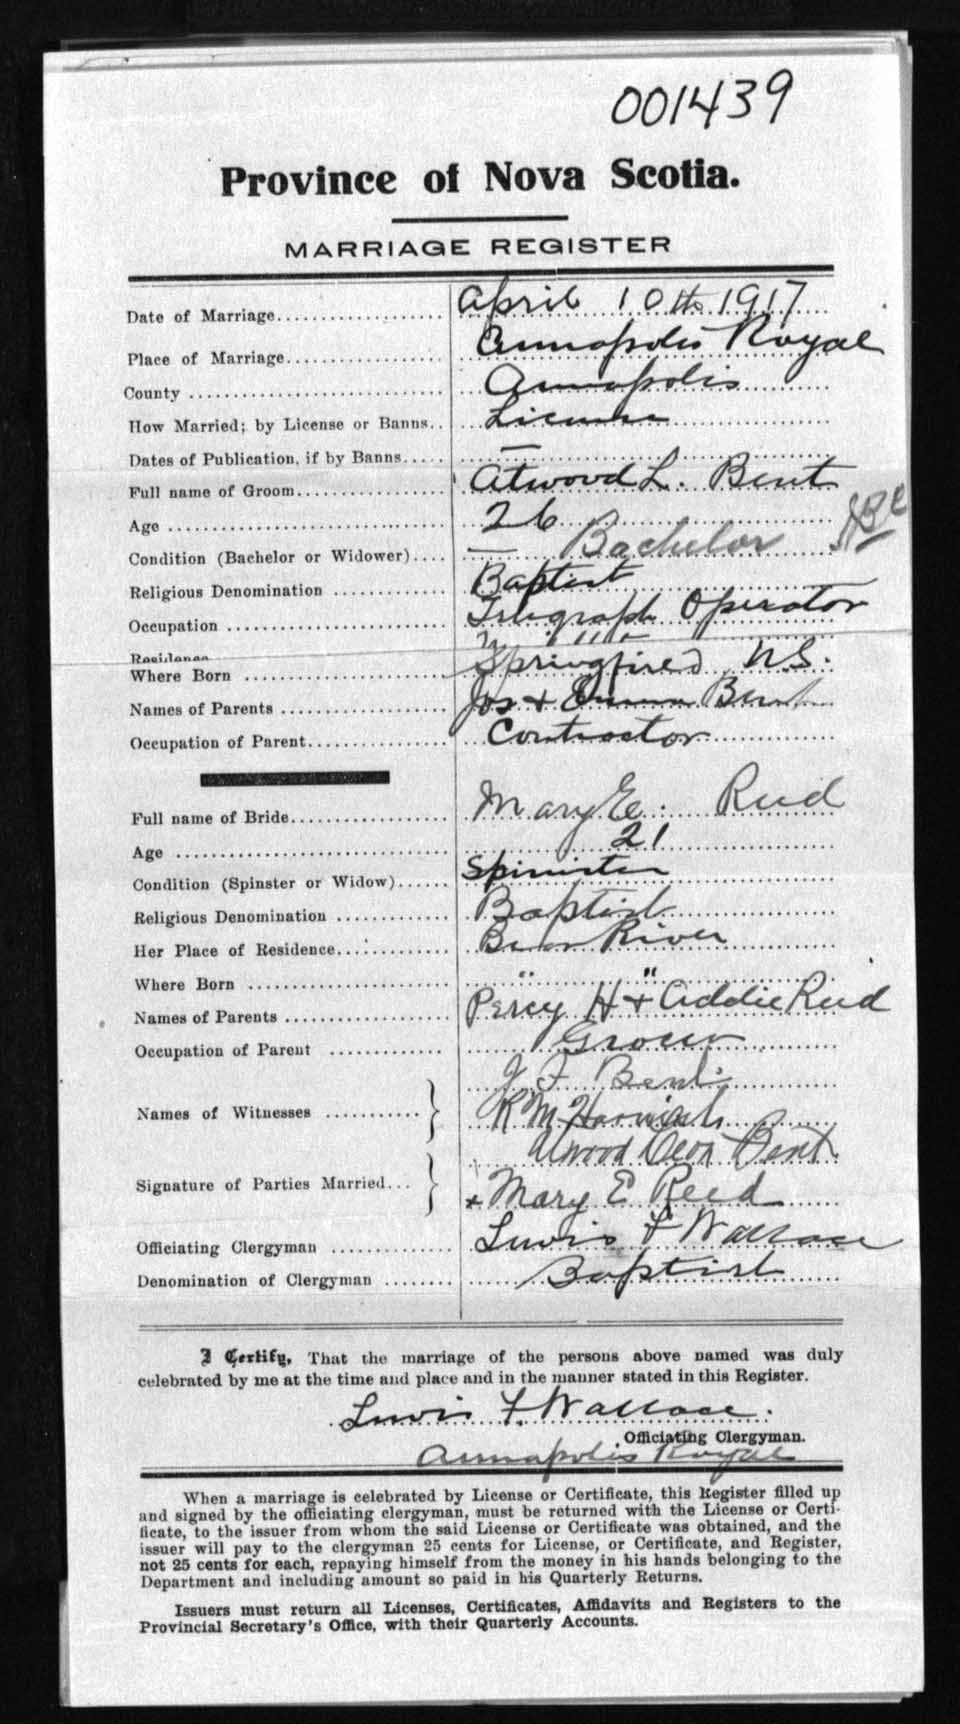 001439
Province of Nova Scotia.
MARRIAGE REGISTER
Date of Marriage April 10th 1917
Place of Marriage Annapolis Royal
County Annapolis
How Married; by License or Banns License
Dates of Publication, if by Banns —
Full name of Groom Atwood L. Bent
Age 26
Condition (Bachelor or Widower) — Bachelor
Religious Denomination Baptist
Occupation Telegraph Operator
Residence
Where Born Springfield N.S.
Names of Parents Jos + Emma Bent
Occupation of Parent Contractor
Full name of Bride Mary E. Reed
Age 21
Condition (Spinster or Widow) Spinster
Religious Denomination Baptist
Her Place of Residence Bear River
Where Born " "
Names of Parents Percy H + Addie Reed
Occupation of Parent Grocer
J F Bent
Names of Witnesses R M Harnish
Atwood Leon Bent
Signature of Parties Married x Mary E Reed
Officiating Clergyman Lewis F Wallace
Denomination of Clergyman Baptist
I Certify, That the marriage of the persons above named was duly
celebrated by me at the time and place and in the manner stated in this Register.
Lewis F. Wallace.
Officiating Clergyman.
Annapolis Royal
When a marriage is celebrated by License or Certificate, this Register filled up
and signed by the officiating clergyman, must be returned with the License or Certi-
ficate, to the issuer from whom the said License or Certificate was obtained, and the
issuer will pay to the clergyman 25 cents for License, or Certificate, and Register,
not 25 cents for each, repaying himself from the money in his hands belonging to the
Department and including amount so paid in his Quarterly Returns.
Issuers must return all Licenses, Certificates, Affidavits and Registers to the
Provincial Secretary's Office, with their Quarterly Accounts.